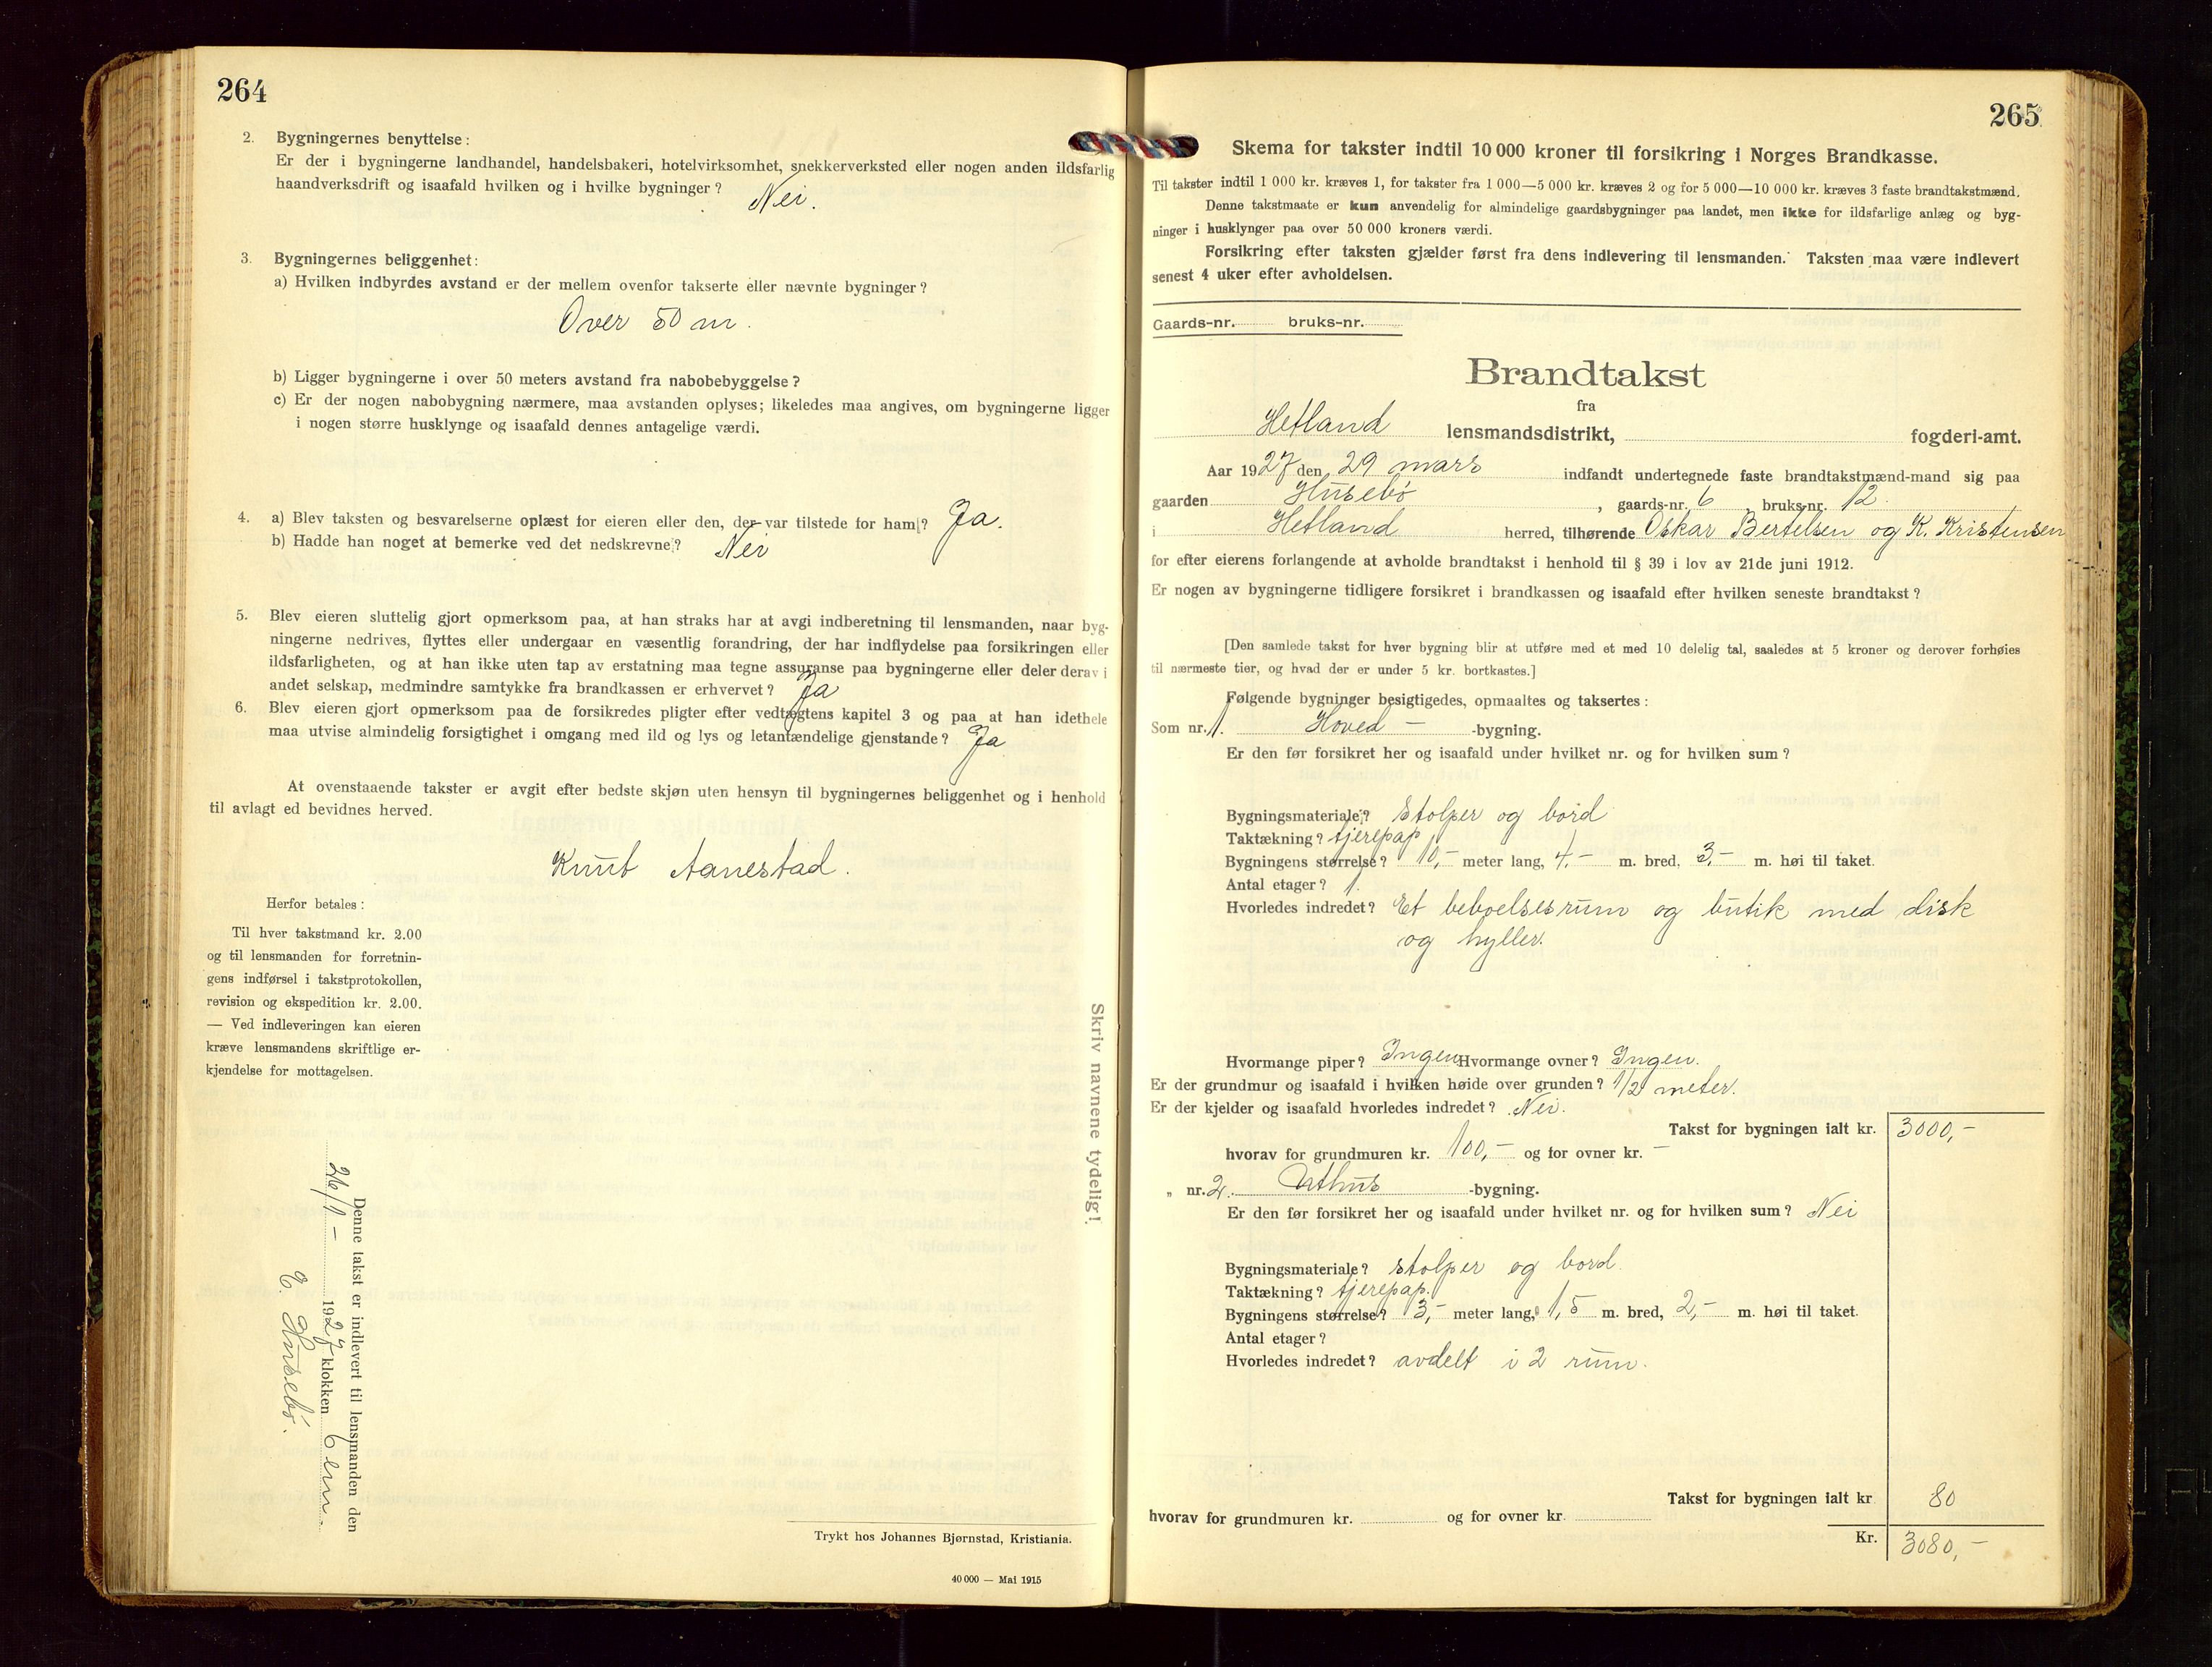 264
2. Bygningernes benyttelse:
Er der i bygningerne landhandel, handelsbakeri, hotelvirksomhet, snekkerverksted eller nogen anden ildsfarlig
haandverksdrift og isaafald hvilken og i hvilke bygninger? Nei.
3. Bygningernes beliggenhet:
a) Hvilken indbyrdes avstand er der mellem ovenfor takserte eller nævnte bygninger?
Over 50 m.
b) Ligger bygningerne i over 50 meters avstand fra nabobebyggelse?
c) Er der nogen nabobygning nærmere, maa avstanden oplyses; likeledes maa angives, om bygningerne ligger
i nogen større husklynge og isaafald dennes antagelige værdi.
4. a) Blev taksten og besvarelserne oplæst for eieren eller den, der var tilstede for ham? Ja.
b) Hadde han noget at bemerke ved det nedskrevne? Nei
5. Blev eieren sluttelig gjort opmerksom paa, at han straks har at avgi indberetning til lensmanden, naar byg-
ningerne nedrives, flyttes eller undergaar en væsentlig forandring, der har indflydelse paa forsikringen eller
ildsfarligheten, og at han ikke uten tap av erstatning maa tegne assuranse paa bygningerne eller deler derav i
andet selskap, medmindre samtykke fra brandkassen er erhvervet? Ja
6. Blev eieren gjort opmerksom paa de forsikredes pligter efter vedtægtens kapitel 3 og paa at han idethele
maa utvise almindelig forsigtighet i omgang med ild og lys og letantændelige gjenstande? Ja
At ovenstaaende takster er avgit efter bedste skjøn uten hensyn til bygningernes beliggenhet og i henhold
til avlagt ed bevidnes herved.
Knut Aanestad.
Herfor betales:
Til hver takstmand kr. 2.00
og til lensmanden for forretnin-
gens indførsel i takstprotokollen,
revision og ekspedition kr. 2.00.
— Ved indleveringen kan eieren
kræve lensmandens skriftlige er-
kjendelse for mottagelsen.
Skriv navnene tydelig!
Denne takst er indlevert til lensmanden den
26/1 - 1927 klokken 6 em.
E. Husebø.
Trykt hos Johannes Bjørnstad, Kristiania.
40 000 — Mai 1915
265
Skema for takster indtil 10 000 kroner til forsikring i Norges Brandkasse.
Til takster indtil 1 000 kr. kræves 1, for takster fra 1 000—5 000 kr. kræves 2 og for 5 000—10 000 kr. kræves 3 faste brandtakstmænd.
Denne takstmaate er kun anvendelig for almindelige gaardsbygninger paa landet, men ikke for ildsfarlige anlæg og byg-
ninger i husklynger paa over 50 000 kroners værdi.
Forsikring efter taksten gjælder først fra dens indlevering til lensmanden. Taksten maa være indlevert
senest 4 uker efter avholdelsen.
Gaards-nr. bruks-nr.
Brandtakst
fra
Hetland lensmandsdistrikt, fogderi-amt.
Aar 1927 den 29 mars indfandt undertegnede faste brandtakstmænd-mand sig paa
gaarden Husebø, gaards-nr. 6 bruks-nr. 12.
i Hetland herred, tilhørende Oskar Bertelsen og K. Kristensen
for efter eierens forlangende at avholde brandtakst i henhold til § 39 i lov av 21de juni 1912.
Er nogen av bygningerne tidligere forsikret i brandkassen og isaafald efter hvilken seneste brandtakst?
[Den samlede takst for hver bygning blir at utføre med et med 10 delelig tal, saaledes at 5 kroner og derover forhøies
til nærmeste tier, og hvad der er under 5 kr. bortkastes.]
Følgende bygninger besigtigedes, opmaaltes og taksertes:
Som nr. 1. Hoved - -bygning.
Er den før forsikret her og isaafald under hvilket nr. og for hvilken sum?
Bygningsmateriale? stolper og bord
Taktækning? tjerepap
Bygningens størrelse? 10,- meter lang, 4,- m. bred, 3,- m. høi til taket.
Antal etager? 1.
Hvorledes indredet? Et beboelsesrum og butik med disk
og hyller.
Hvormange piper? Ingen Hvormange ovner? Ingen.
Er der grundmur og isaafald i hvilken høide over grunden? 1/2 meter.
Er der kjelder og isaafald hvorledes indredet? Nei.
Takst for bygningen ialt kr. 3000,-
hvorav for grundmuren kr. 100,- og for ovner kr. -
„ nr. 2. Uthus -bygning.
Er den før forsikret her og isaafald under hvilket nr. og for hvilken sum? Nei
Bygningsmateriale? stolper og bord.
Taktækning? tjerepap.
Bygningens størrelse? 3,- meter lang, 1,5 m. bred, 2,- m. høi til taket.
Antal etager?
Hvorledes indredet? avdelt i 2 rum.
Takst for bygningen ialt kr 80
hvorav for grundmuren kr. og for ovner kr.
Kr. 3080,-